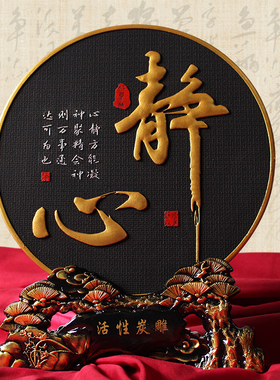 静心
心静方能凝
神聚精会神
则万事通
达可为也
活性炭雕